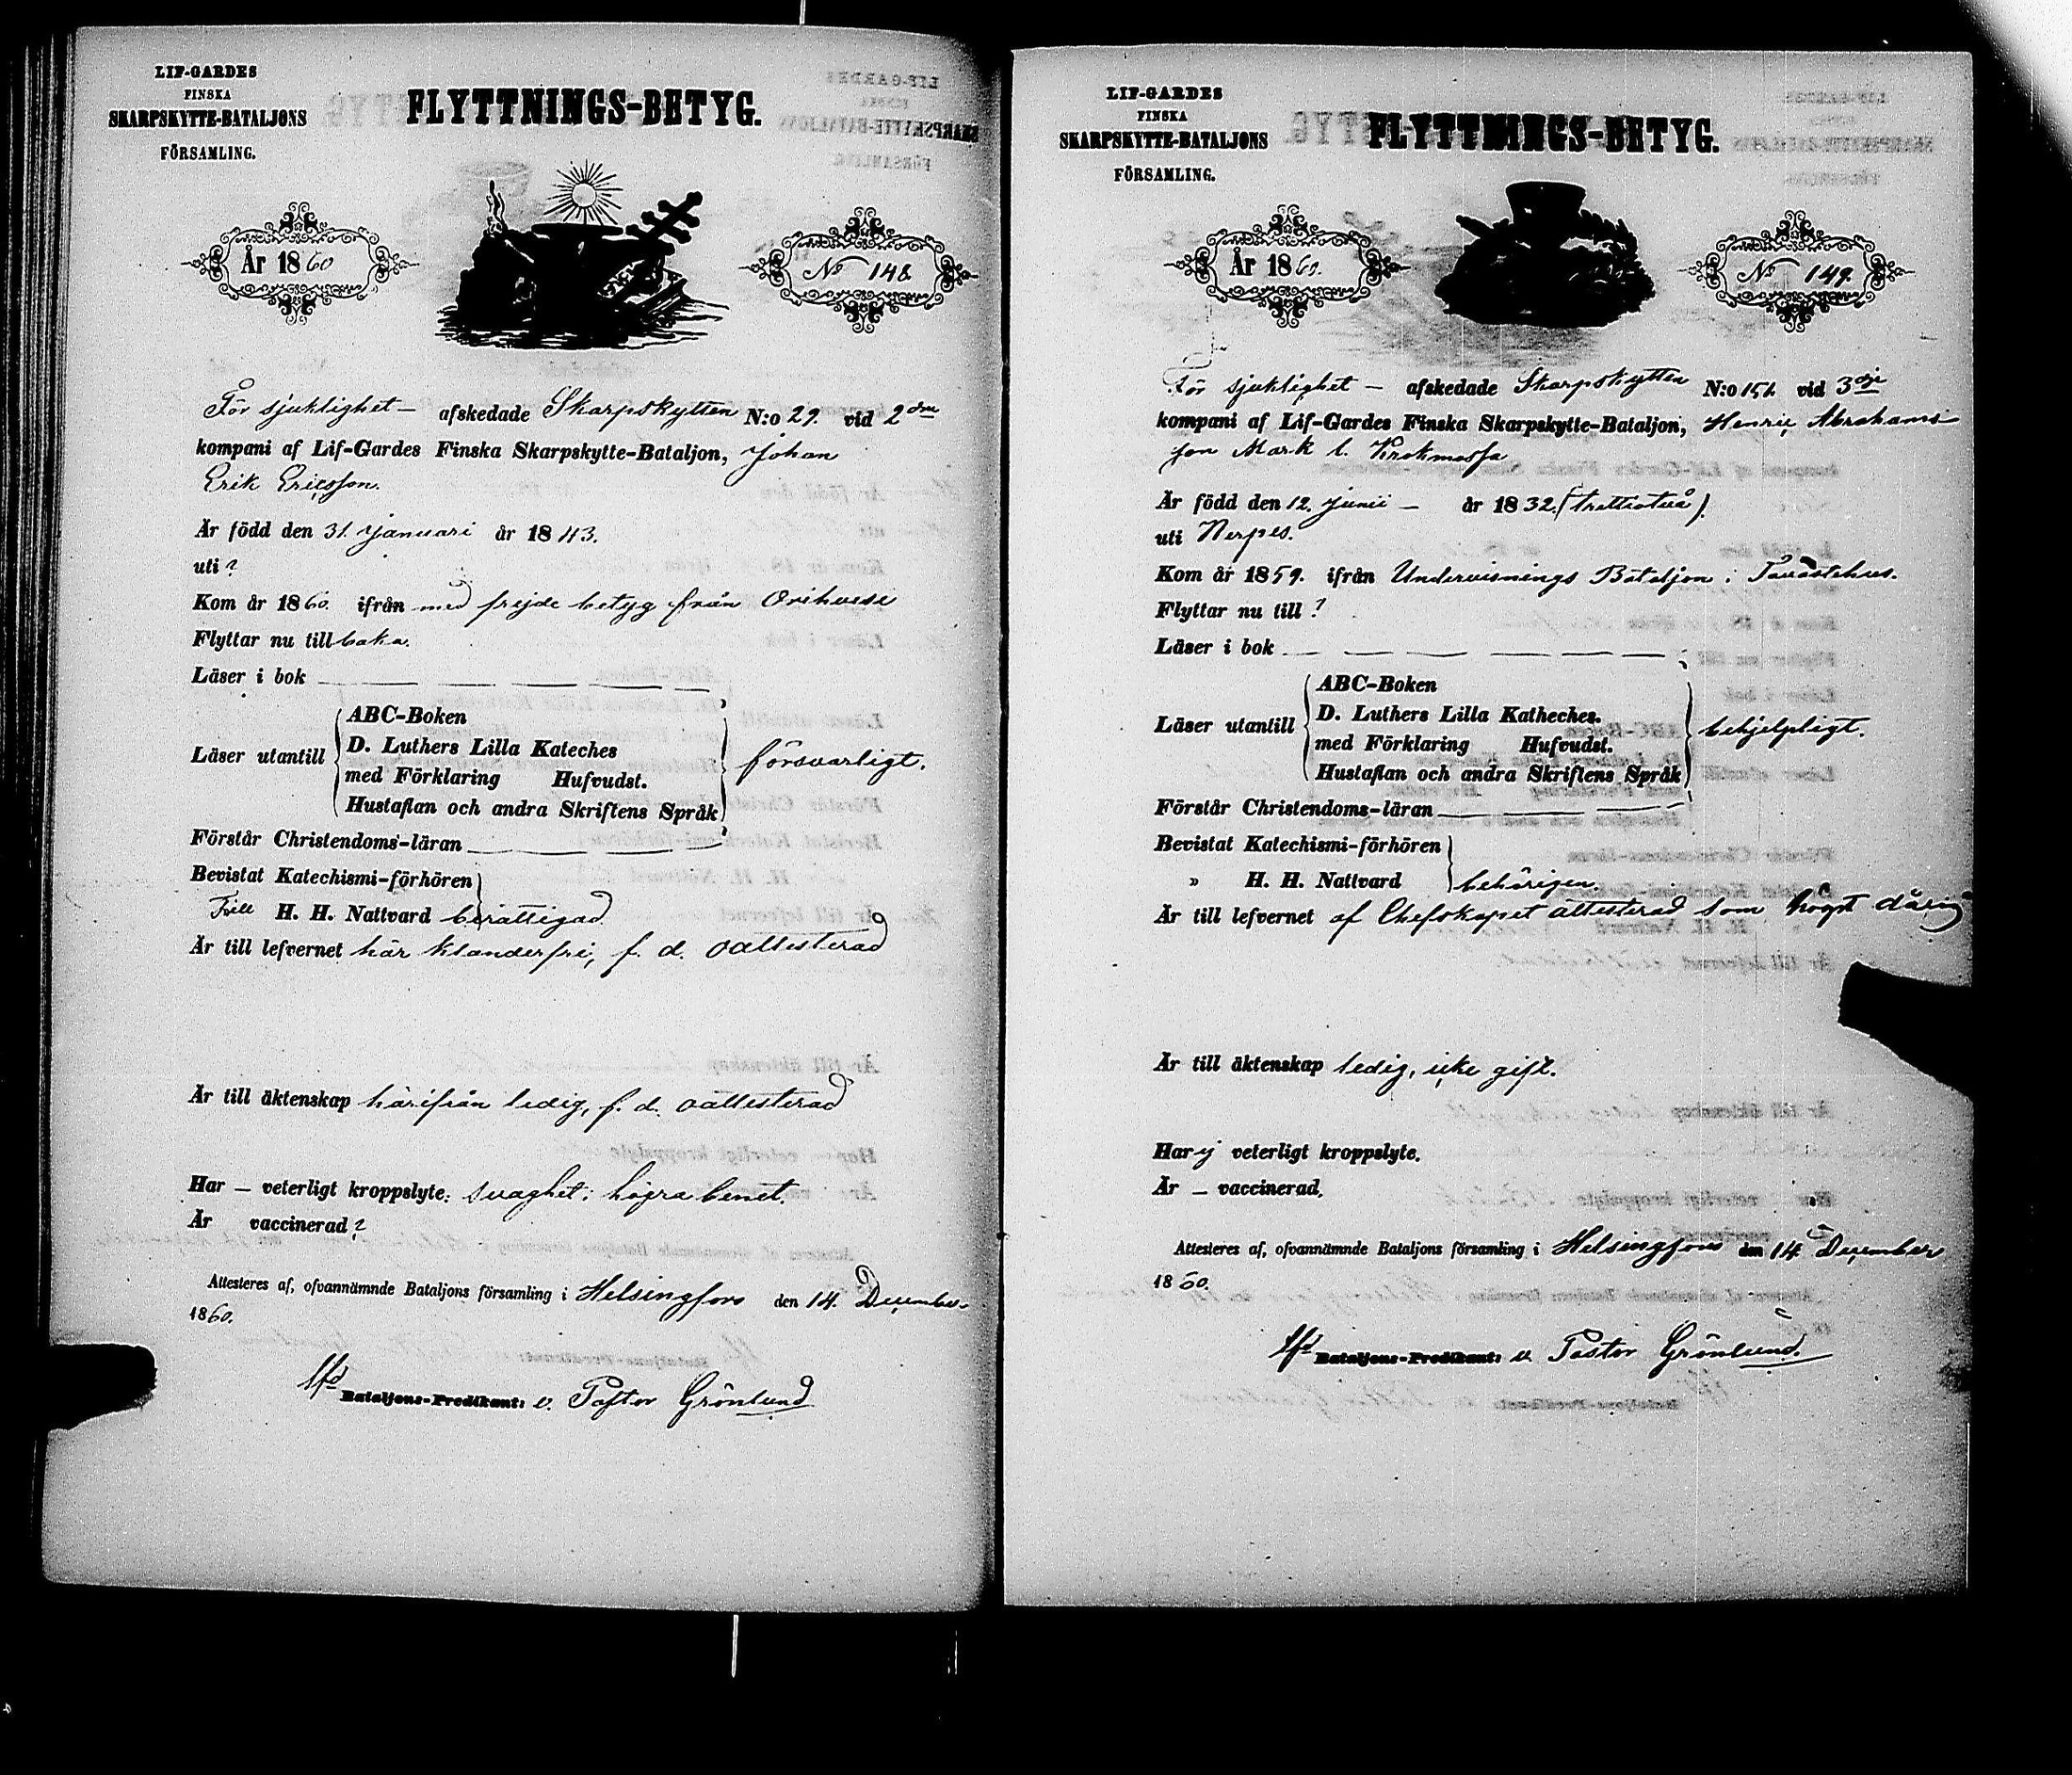 LIF-GARDES
FINSKA
SKARPSKYTTE-BATALJONS
FÖRSAMLING.
FLYTTNINGS-BETYG.
År 1860
No 148.
För sjuklighet — afskedade Skarpskytten N:o 29. vid 2dra
kompani af Lif-Gardes Finska Skarpskytte-Bataljon, Johan
Erik Ericsson.
Är född den 31. Januari år 1843.
uti ?
Kom år 1860. ifrån med frejde betyg från Orihvesi
Flyttar nu till baka.
Läser i bok — — — — —
Läser utantill
ABC-Boken
D. Luthers Lilla Kateches
med Förklaring Hufvudst.
Hustaflan och andra Skriftens Språk
försvarligt.
Förstår Christendoms-läran — — —
Bevistat Katechismi-förhören
Till H. H. Nattvard berättigad.
Är till lefvernet här klanderfri, f. d. oattesterad
Är till äktenskap härifrån ledig, f. d. oattesterad
Har — veterligt kroppslyte: svaghet i högra benet.
Är vaccinerad ?
Attesteres af, ofvannämnde Bataljons församling i Helsingfors den 14. December
1860.
Bataljons-Predikant: v. Pastor Grönlund
LIF-GARDES
FINSKA
SKARPSKYTTE-BATALJONS
FÖRSAMLING.
FLYTTNINGS-BETYG.
År 1860.
No 149.
För sjuklighet — afskedade Skarpskytten N:o 151. vid 3dje
kompani af Lif-Gardes Finska Skarpskytte-Bataljon, Henric Abrahams-
son Mark l. Krokmossa
Är född den 12. Junii — år 1832. (trettiotvå).
uti Nerpes.
Kom år 1859. ifrån Undervisnings Bataljon i Tavastehus.
Flyttar nu till ?
Läser i bok — — — — —
Läser utantill
ABC-Boken
D. Luthers Lilla Katheches.
med Förklaring Hufvudst.
Hustaflan och andra Skriftens Språk
behjelpligt.
Förstår Christendoms-läran — — —
Bevistat Katechismi-förhören
» H. H. Nattvard behörigen.
Är till lefvernet af Chefskapet attesterad som högst
Är till äktenskap ledig, icke gift.
Har ej veterligt kroppslyte.
Är — vaccinerad.
Attesteres af, ofvannämnde Bataljons församling i Helsingfors den 14. December
1860.
Bataljons-Predikant: v. Pastor Grönlund.